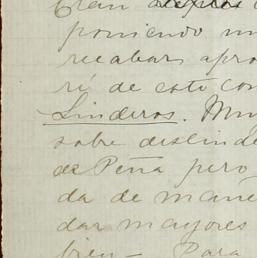 Gran
poniendo un
recabar apro
ré de esto con
Linderos. Mu
sobre deslinde
de Peña pero
da de mane
dar mayores
bien — Para